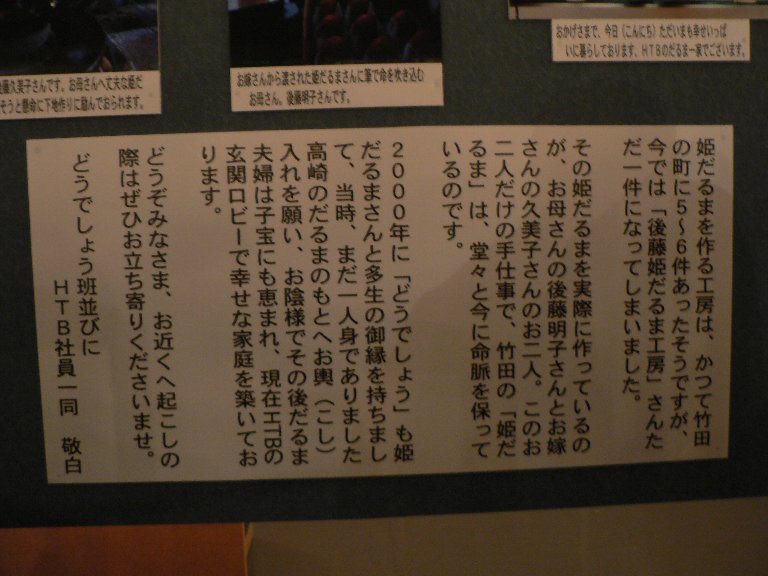 後藤久美子さんです。お母さんへ丈夫な姫だ
そうと懸命に下地作りに励んでおられます。
お嫁さんから渡された姫だるまさんに筆で命を吹き込む
お母さん、後藤明子さんです。
おかげさまで、今日（こんにち）ただいまも幸せいっぱ
いに暮らしております、HTBのだるま一家でございます。
姫だるまを作る工房は、かつて竹田
の町に5～6件あったそうですが、
今では「後藤姫だるま工房」さんた
だ一件になってしまいました。
その姫だるまを実際に作っているの
が、お母さんの後藤明子さんとお嫁
さんの久美子さんのお二人。このお
二人だけの手仕事で、竹田の「姫だ
るま」は、堂々と今に命脈を保って
いるのです。
2000年に「どうでしょう」も姫
だるまさんと多生の御縁を持ちまし
て、当時、まだ一人身でありました
高崎のだるまのもとへお輿（こし）
入れを願い、お陰様でその後だるま
夫婦は子宝にも恵まれ、現在HTBの
玄関ロビーで幸せな家庭を築いてお
ります。
どうぞみなさま、お近くへ起こしの
際はぜひお立ち寄りくださいませ。
どうでしょう班並びに
HTB社員一同 敬白